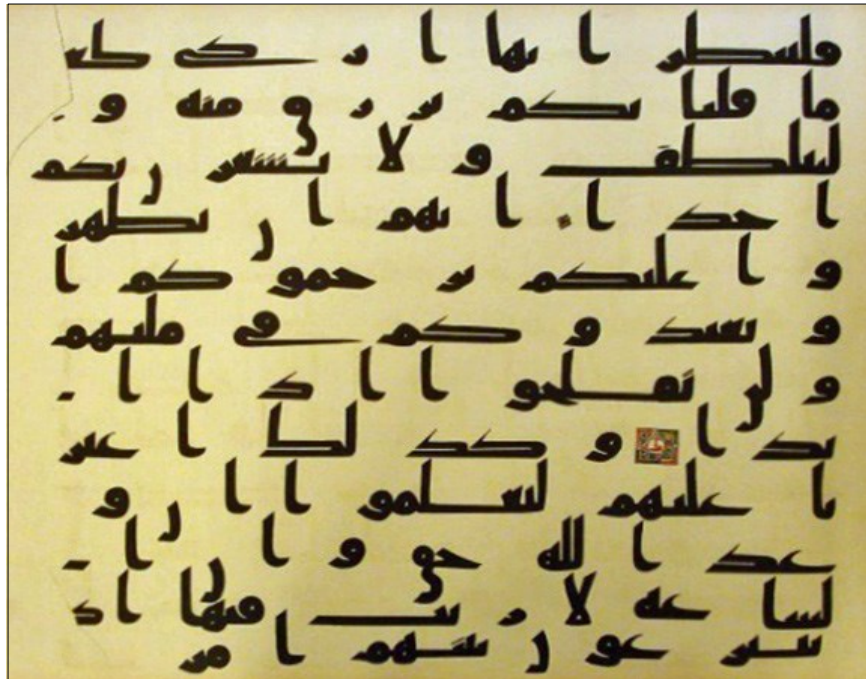 فلينظر ايها ازكى طعا
ما فلياتكم برزق منه و
ليتلطف ولا يشعرن بكم
احدا انهم ان يظهر
وا عليكم يرجموكم ا
و يعيدوكم في ملتهم
ولن تفلحوا اذا ا
بدا وكذلك اعثر
نا عليهم ليعلموا ان و
عد الله حق وان ا
لساعة لا ريب فيها اذ
يتنزعون بينهم امر